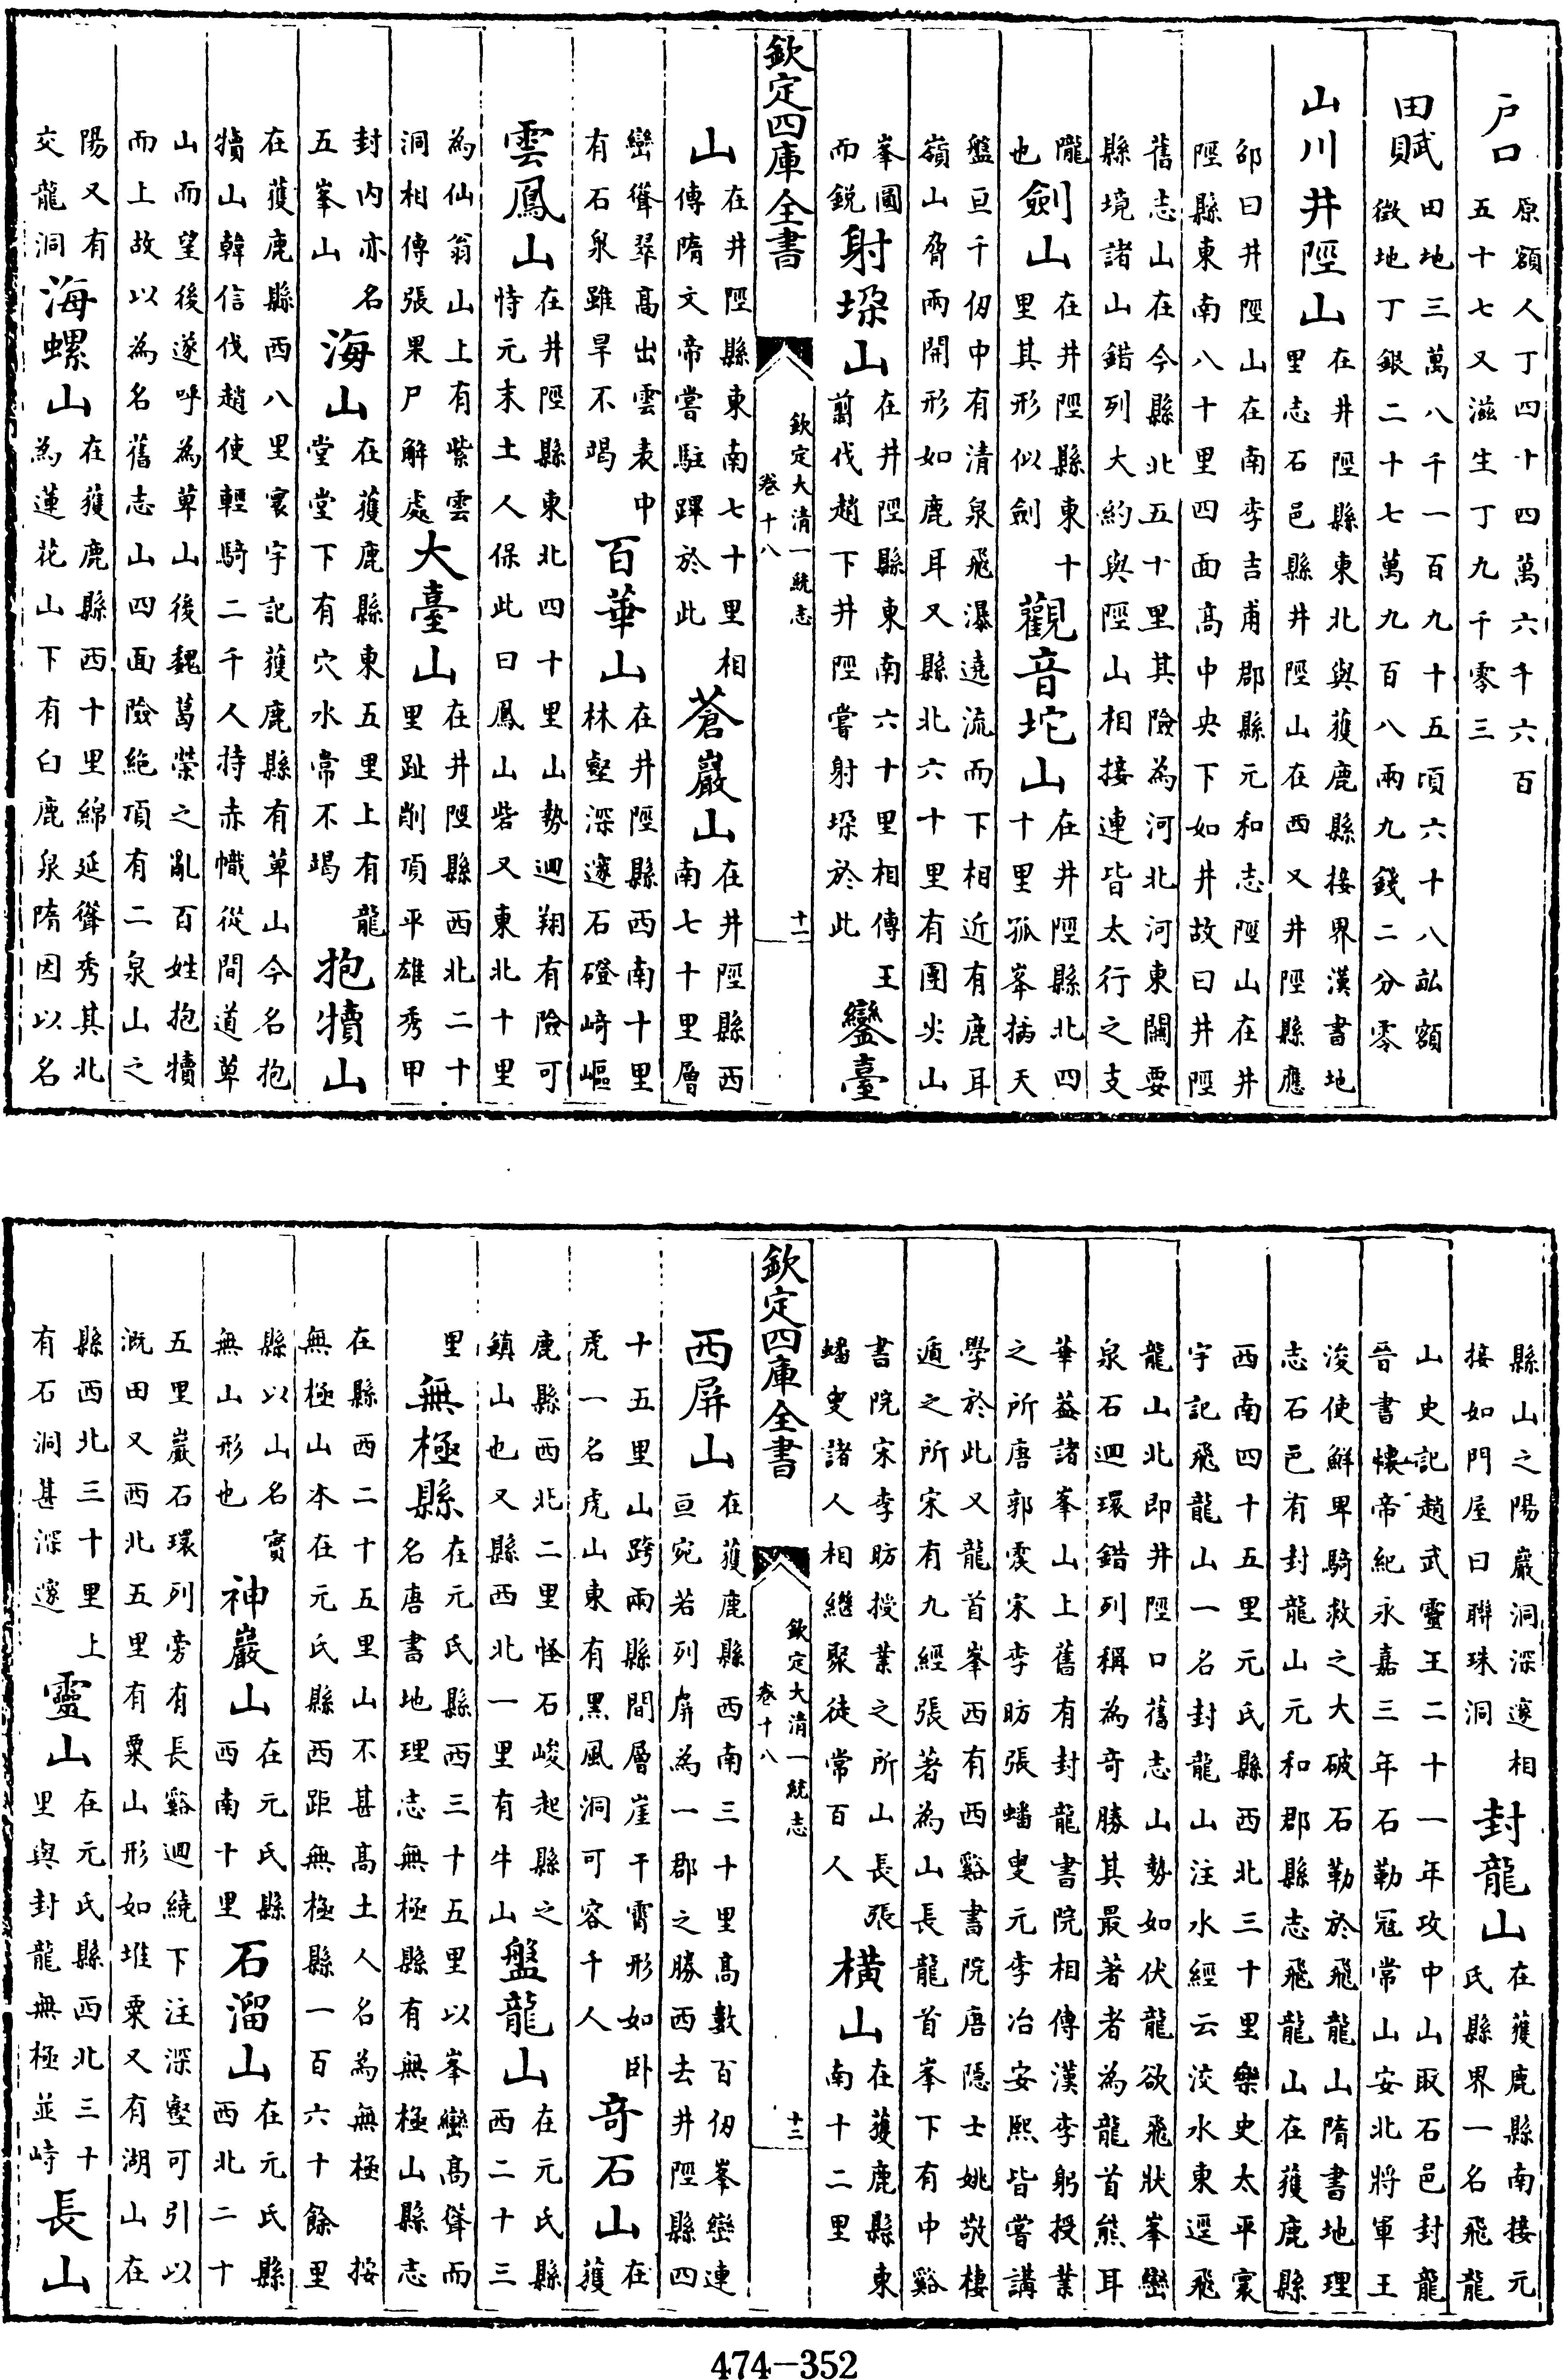 戶口 原額人丁四十四萬六千六百
五十七又滋生丁九千零三
田賦 田地三萬八千一百九十五頃六十八畝額
徵地丁銀二十七萬九百八兩九錢二分零
山川井陘山 在井陘縣東北與獲鹿縣接界漢書地
里志石邑縣井陘山在西又井陘縣應
邵曰井陘山在南李吉甫郡縣元和志陘山在井
陘縣東南八十里四面高中央下如井故曰井陘
舊志山在今縣北五十里其險為河北河東關要
縣境諸山錯列大約與陘山相接連皆太行之支
隴也 劍山 在井陘縣東十里其形似劍 觀音坨山 在井陘縣北四十里孤峯摛天
盤亘千仞中有清泉飛瀑遶流而下相近有鹿耳
嶺山脅兩開形如鹿耳又縣北六十里有團尖山
峯圓而銳 射垜山 在井陘縣東南六十里相傳王翦伐趙下井陘嘗射垜於此 鑾臺
欽定四庫全書 欽定大清一統志 卷十八 十一
山 在井陘縣東南七十里相傳隋文帝嘗駐蹕於此 蒼巖山 在井陘縣西南七十里層
巒聳翠高出雲表中有石泉雖旱不竭 百華山 在井陘縣西南十里林壑深邃石磴崎嶇
雲鳳山 在井陘縣東北四十里山勢迴翔有險可
恃元末土人保此曰鳳山砦又東北十里
為仙翁山上有紫雲洞相傳張果尸解處 大臺山 在井陘縣西北二十里趾削頂平雄秀甲
封內亦名五峯山 海山 在獲鹿縣東五里上有龍堂堂下有穴水常不竭 抱犢山
在獲鹿縣西八里寰宇記獲鹿縣有萆山今名抱
犢山韓信伐趙使輕騎二千人持赤幟從間道萆
山而望後遂呼為萆山後魏葛榮之亂百姓抱犢
而上故以為名舊志山四面險絕頂有二泉山之
陽又有交龍洞 海螺山 在獲鹿縣西十里綿延聳秀其北為蓮花山下有白鹿泉隋因以名
縣山之陽巖洞深邃相接如門屋曰聯珠洞 封龍山 在獲鹿縣南接元氏縣界一名飛龍
山史記趙武靈王二十一年攻中山取石邑封龍
晉書懷帝紀永嘉三年石勒寇常山安北將軍王
浚使鮮卑騎救之大破石勒於飛龍山隋書地理
志石邑有封龍山元和郡縣志飛龍山在獲鹿縣
西南四十五里元氏縣西北三十里樂史太平寰
宇記飛龍山一名封龍山注水經云洨水東逕飛
龍山北即井陘口舊志山勢如伏龍欲飛狀峯巒
泉石迴環錯列稱為奇勝其最著者為龍首熊耳
華蓋諸峯山上舊有封龍書院相傳漢李躬授業
之所唐郭震宋李昉張蟠叟元李冶安熙皆嘗講
學於此又龍首峯西有西谿書院唐隱士姚敬棲
遁之所宋有九經張著為山長龍首峯下有中谿
書院宋李昉授業之所山長張蟠叟諸人相繼聚徒常百人 橫山 在獲鹿縣東南十二里
欽定四庫全書 欽定大清一統志 卷十八 十二
西屏山 在獲鹿縣西南三十里高數百仞峯巒連
亘宛若列屏為一郡之勝西去井陘縣四
十五里山跨兩縣間層崖干霄形如卧虎一名虎山東有黑風洞可容千人 奇石山 在獲
鹿縣西北二里怪石峻起縣之鎮山也又縣西北一里有牛山 盤龍山 在元氏縣西二十三
里 無極縣 在元氏縣西三十五里以峯巒高聳而名唐書地理志無極縣有無極山縣志
在縣西二十五里山不甚高土人名為無極 按
無極山本在元氏縣西距無極縣一百六十餘里
縣以山名實無山形也 神巖山 在元氏縣西南十里 石溜山 在元氏縣西北二十
五里巖石環列旁有長谿迴繞下注深壑可引以
溉田又西北五里有粟山形如堆粟又有湖山在
縣西北三十里上有石洞甚深邃 靈山 在元氏縣西北三十里與封龍無極並峙 長山
474-352